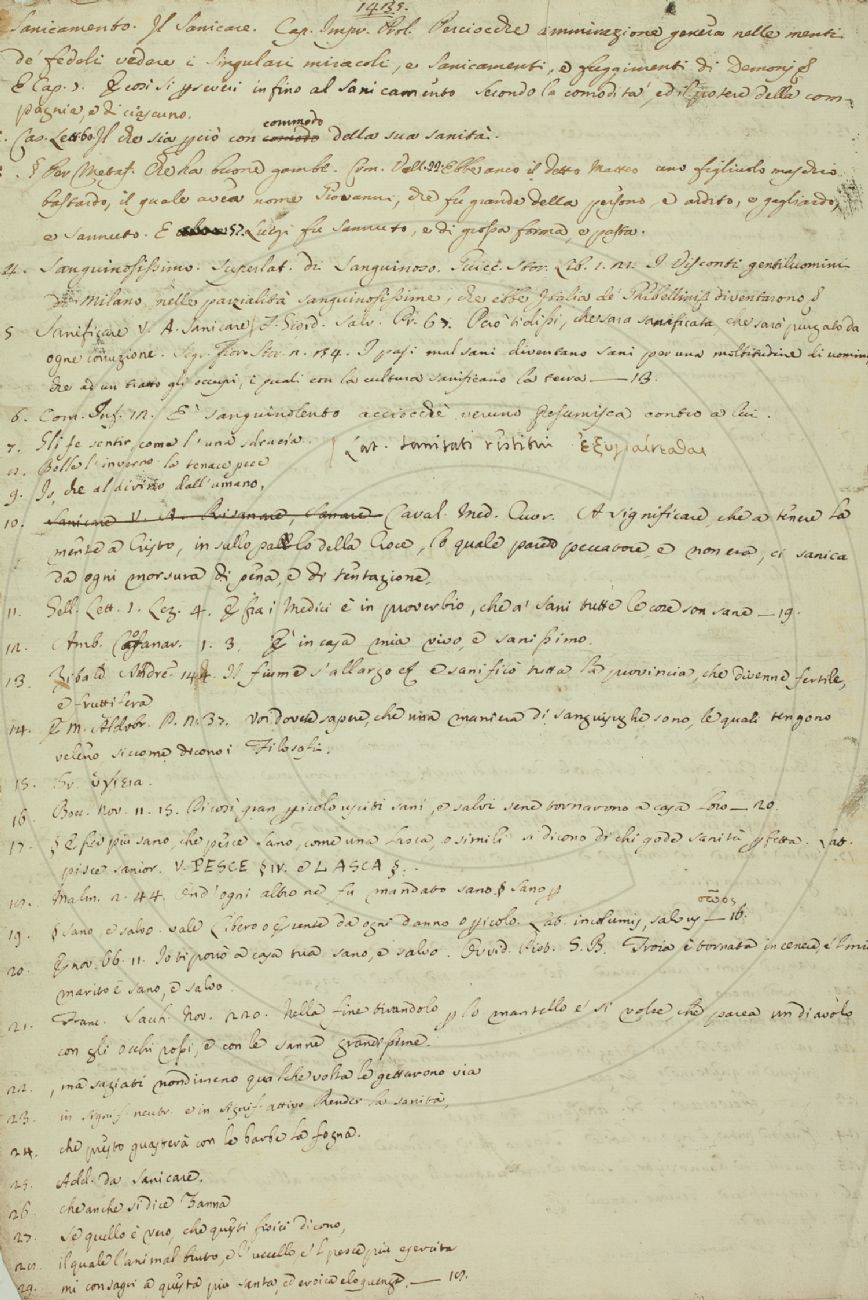 1435.
Sanicamento. Il Sanicare. Cap. Impr. Prol. Perciocchè amminazione genera nelle menti
de' fedeli vedere i singulari miracoli, e Sanicamenti, e fuggimenti di Demonj §
E Cap. 7. E così si infino al Sanicamento secondo la comodità, ed il potere della com-
pagnia, e di ciascuno.
commodo
Cap. Il che sia con comodo della sua sanità.
§ Per Metaf. Che ha buone gambe. Com. Ebbe anco il detto Matteo uno figliuolo maschio
bastardo, il quale avea nome Giovanni, che fu grande della persona, e ardito, e gagliardo,
e Sannuto. E 57. Luigi fu Sannuto, e di grossa forma, e pasta.
4. Sanguinosissimo. Superlat. di Sanguinoso. Guicc. Stor. Lib. 1. I Visconti gentiluomini
di Milano nelle parzialità sanguinosissime, che ebbe Italia de' Ghibellini, diventarono §
5 Sanificare V. A. Sanicare. Salv. Però ti dissi, che sara sanificata che sarò purgato da
ogne corruzione. Segr. Fior. Stor. I paesi mal sani diventano sani per una moltitudine di uomini
che ad un tratto gli occupi, i quali con la cultura sanificano la terra — 13.
6. Com. Inf. 12. E' sanguinolento acciocchè veruno presumisca contro a lui.
7. Gli fe sentir come l'una
Lat. sanitati restitui
8. Bolle l'inverno la tenace pece
9. Io, che al divino dall'umano,
10. Sanicare V. A. Risanare, Sanare Caval. Med. Cuor. A significare, che a tenere la
mente a Cristo, in sullo pallo della Croce, lo quale pareo peccatore, e non era, ci sanica
da ogni morsura di pena, e di tentazione.
11. Gell. Lett. 1. Lez. 4. E fra i Medici è in proverbio, che a' sani tutte le cose son sane — 19.
12. Amb. Cofanar. 1. 3. E' in casa mia vivo, e sanissimo.
13. Zibald. Andr. 144. Il fiume s'allargo e sanificò tutta la provincia, che divenne fertile,
e fruttifera
14. E M. Aldobr. P. N. 37. Voi dovete sapere, che una maniera di sanguisughe sono, le quali tengono
veleno siccome dicono i Filosafi.
15. Gr. ὑγίεια.
16 Bocc. Nov. 11. 15. Di così gran pericolo usciti sani, e salvi sene tornarono a casa loro — 20.
17. § E più sano, che pesce Sano, come una lasca, o simili si dicono di chi gode sanità perfetta. Lat.
pisce sanior. V. PESCE § IV. e LASCA §.
18. Malm. 2. 44. Ond'ogni altro ne fu mandato sano. § Sano
19. § Sano, e salvo. vale Libero o Esente da ogni danno o pericolo. Lat. incolumis, salvus — 16.
20. E nov. 66. 11. Io ti porrò a casa tua sano, e salvo. Ovvid. Pist. S. B. Troia è tornata in cenere, e 'l mio
marito è sano, e salvo.
21. Franc. Sacch. Nov. 220. Nella fine tirandolo per lo mantello e' si volse, che parea un diavolo
con gli occhi rossi, e con le sanne grandissime.
22. , ma sagiati nondimeno qualche volta le gettarono via
23. in signif. neutr. e in signif. attivo Render la sanità,
24. che presto guasterà con le barbe la fogna.
25. Add. da Sanicare.
26. che anche si dice Zanna
27. Se quello è vero, che questi fisici dicono,
28. il quale l'animal bruto, e l'uccello e 'l pesce più esercita
29. mi consagri a questa pia santa, ed eroica eloquenza. — 18.